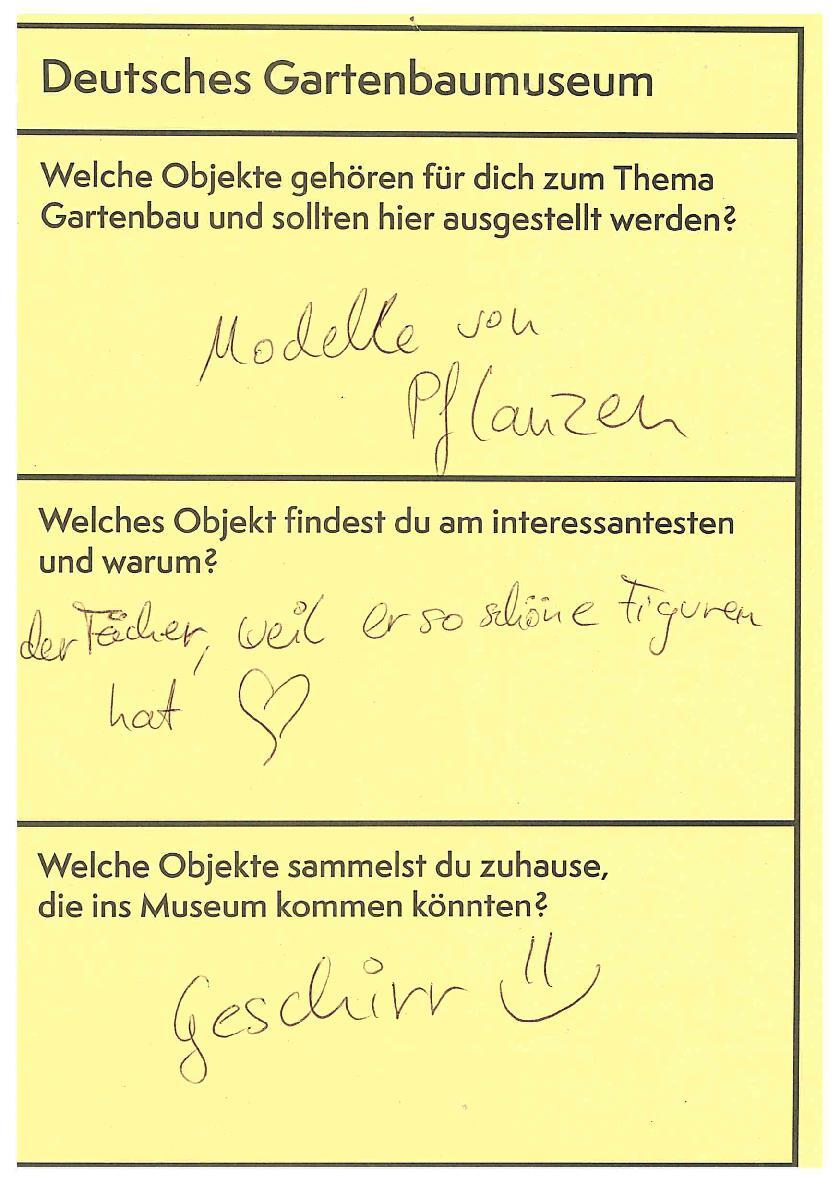 Deutsches Gartenbaumuseum
Welche Objekte gehören für dich zum Thema
Gartenbau und sollten hier ausgestellt werden?
Modelle von
Pflanzen
Welches Objekt findest du am interessantesten
und warum?
der Fächer, weil er so schöne Figuren
hat
Welche Objekte sammelst du zuhause,
die ins Museum kommen könnten?
Geschirr